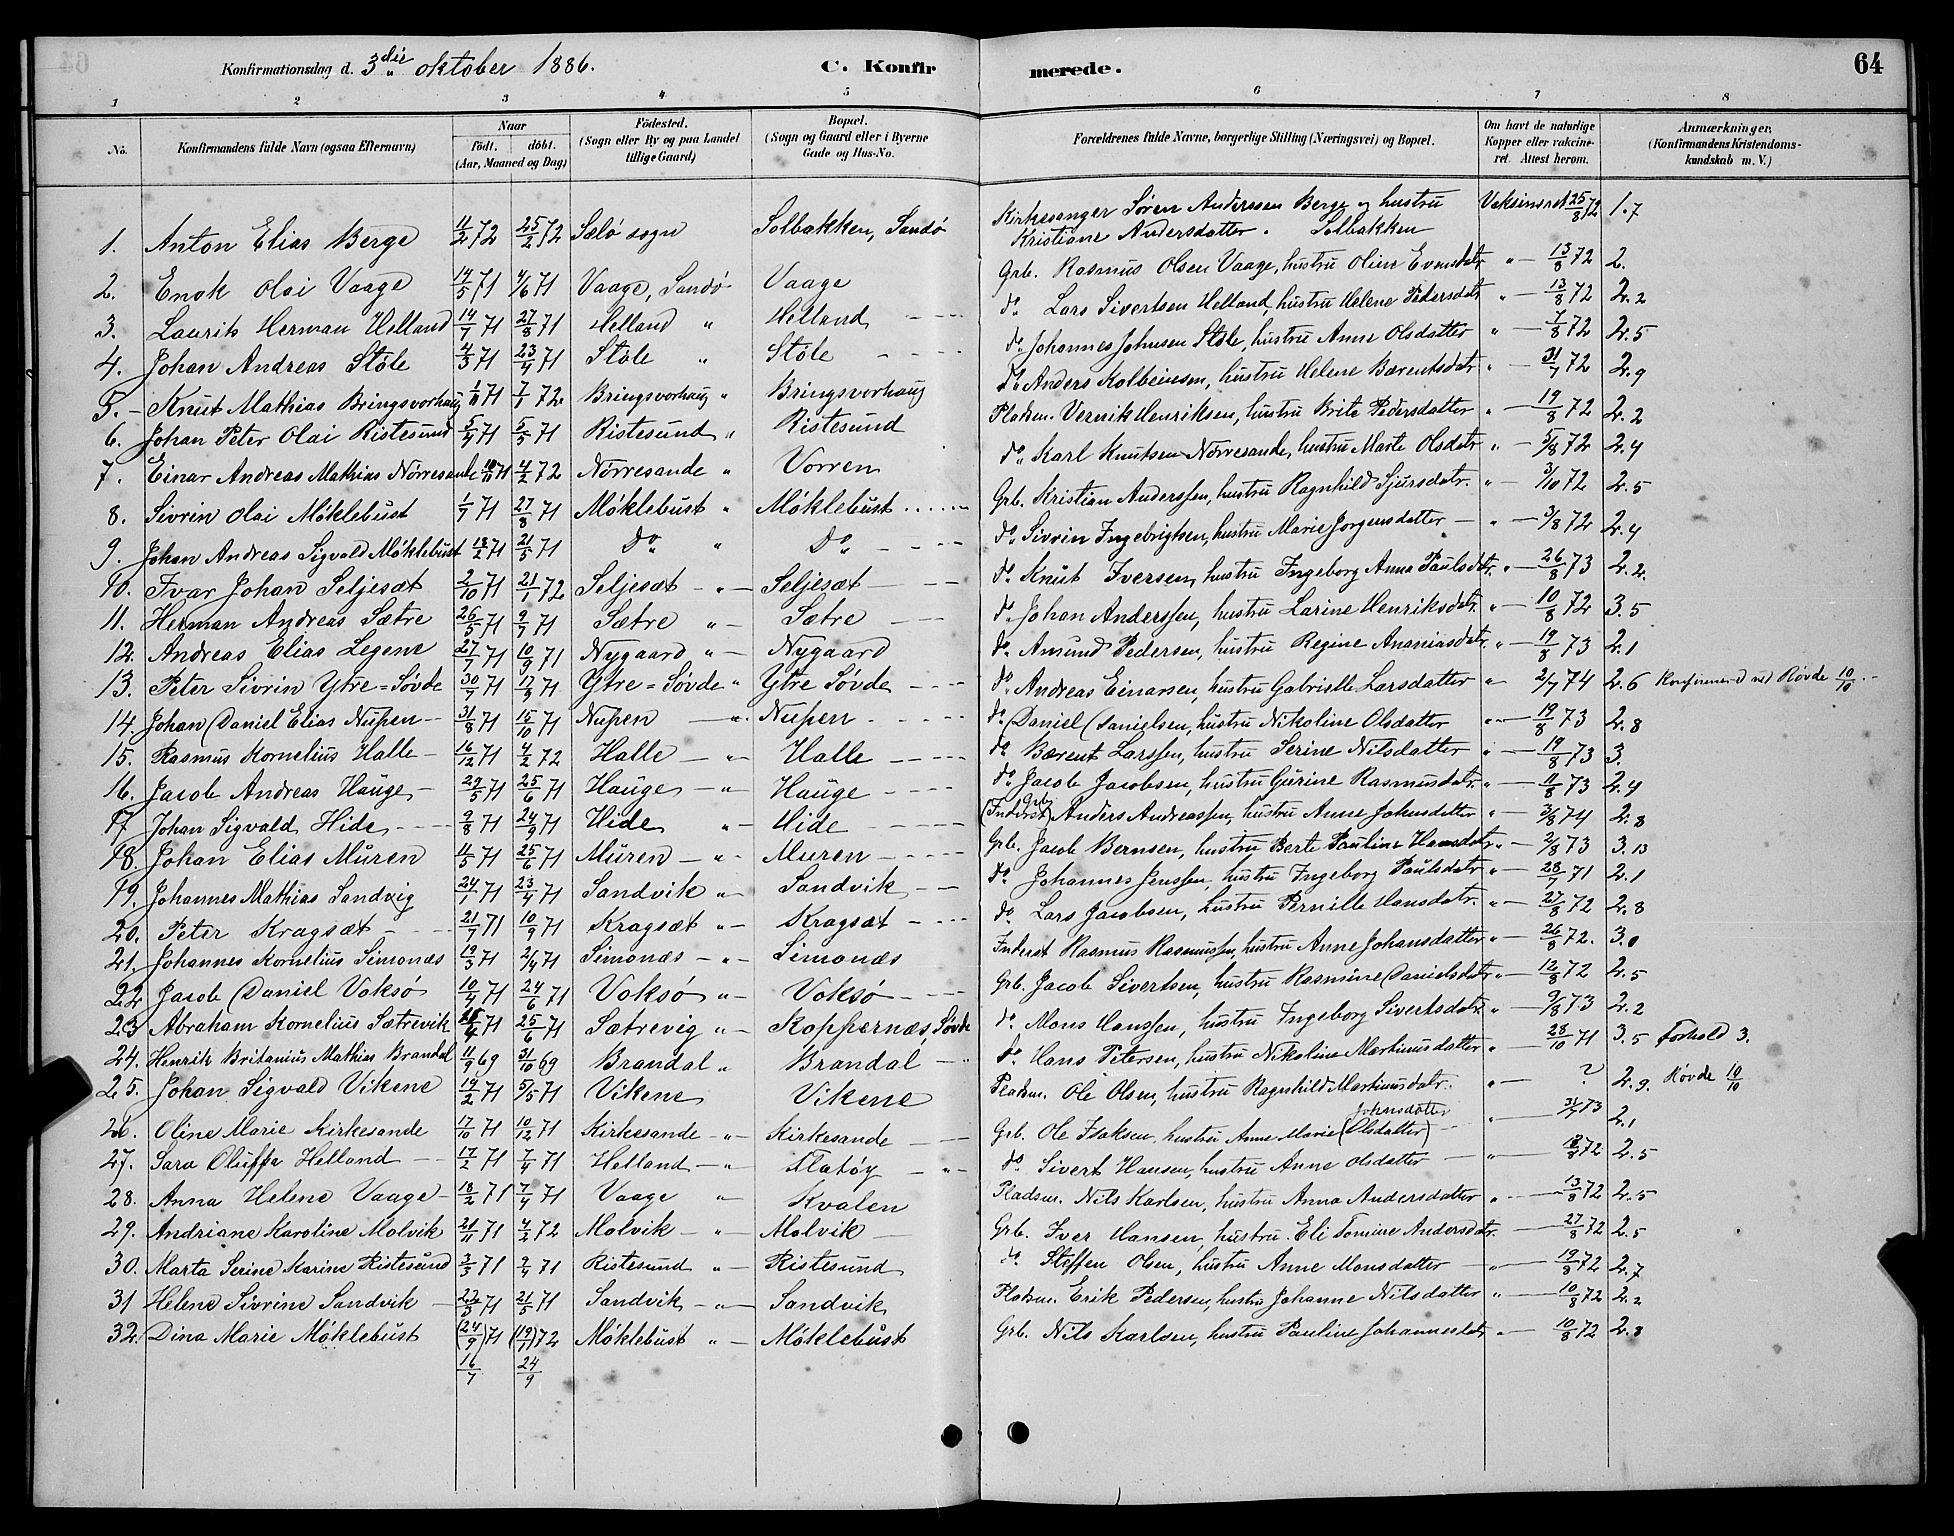 64
Konfirmationsdag d. 3die oktober 1886. C. Konfirmerede.
1 2 3 4 5 6 7 8
No. Konfirmandens fulde Navn (ogsaa Efternavn) Naar födt. döbt. (Aar, Maaned og Dag) Födested. (Sogn eller By og paa Landet tillige Gaard) Bopæl. (Sogn og Gaard eller i Byerne Gade og Hus-No. Forældrenes fulde Navne, borgerlige Stilling (Næringsvei) og Bopæl. Om havt de naturlige Kopper eller vakcineret. Attest herom. Anmærkninger. (Konfirmandens Kristendomskundskab m. V.)
1. Anton Elias Berge 11/2 72 25/2 72 Sælø sogn Solbakken, Sandö Kirkesanger Søren Anderssen Berge og hustru Kristiane Andersdatter. Solbakken Vaksineret 25/8 72 1.7
2. Enok Olai Vaage 14/5 71 4/6 71 Vaage, Sandø Vaage Grb. Rasmus Olsen Vaage, hustru Oline Evensdatr " — 13/8 72 2.
3. Laurits Herman Helland 14/7 71 27/8 71 Helland " Helland do Lars Sivertsen Helland, hustru Helene Pedersdatr " — 13/8 72 2.2
4. Johan Andreas Støle 4/3 71 23/4 71 Støle " Støle do Johannes Johnsen Støle, hustru Anne Olsdatter " — 7/8 72 2.5
5. Knut Mathias Bringsvorhaug 1/11 71 7/1 72 Bringsvorhaug " Bringsvorhaug do Anders Kolbeinsen, hustru Helene Bærentsdatr " — 31/7 72 2.9
6. Johan Peter Olai Ristesund 5/4 71 5/5 71 Ristesund " Ristesund Pladsm. Henriksen, hustru Brite Pedersdatter " — 19/8 72 2.2
7. Einar Andreas Mathias Nørresande 71 4/2 72 Nørresande " Vorren do Karl Knutsen Nørresande, hustru Marte Olsdatr " — 5/8 72 2.4
8. Sivrin Olai Møklebust 1/7 71 27/8 71 Møklebust " Møklebust Grb. Kristian Anderssen, hustru Ragnhild Sjursdatr. " — 3/10 72 2.5
9. Johan Andreas Sigvald Møklebust 18/2 71 21/5 71 Do " Do do Sivrin Ingebrigtsen, hustru Marie Jorgensdatter " — 3/8 72 2.4
10. Ivar Johan Seljesæt 2/10 71 21/1 72 Seljesæt " Seljesæt do Knut Iversen, hustru Ingeborg Anna Paulsdtr. " — 26/8 73 2.2.
11. Herman Andreas Sætre 26/5 71 9/7 71 Sætre " Sætre do Johan Anderssen, hustru Larine Henriksdatr. " — 10/8 72 3.5
12. Andreas Elias Legene 27/7 71 10/9 71 Nygaard " Nygaard do Amund Pedersen, hustru Regine Ananiasdatr. " — 19/8 73 2.1
13. Peter Sivrin Ytre=Søvde 30/7 71 17/9 71 Ytre=Søvde " Ytre Søvde do Andreas Einarsen, hustru Gabrielle Larsdatter " 2/7 74 2.6 Konfirmered ved Røvde 10/10.
14. Johan Daniel Elias Nupen 31/8 71 15/10 71 Nupen " Nupen do Daniel Danielsen, hustru Nikoline Olsdatter " — 19/8 73 2.8
15. Rasmus Kornelius Halle 16/12 71 4/2 72 Halle " Halle do Bærent Larssen, hustru Serine Nilsdatter " — 19/8 73 3.
16. Jacob Andreas Hauge 29/5 71 25/6 71 Hauge " Hauge do Jacob Jacobsen, hustru Gurine Rasmusdatr. " — 11/8 73 2.4
17 Johan Sigvald Hide 9/8 71 24/9 71 Hide " Hide (Inderst) Grb. Anders Andreassen, hustru Anne Johnsdatter " — 3/8 74 2.8
18. Johan Elias Muren 11/5 71 25/6 71 Muren " Muren Grb. Jacob Bernsen, hustru Berte Pauline Hansdatr " — 2/8 73 3.13
19. Johannes Mathias Sandvig 24/1 71 23/4 71 Sandvik " Sandvik do Johannes Jenssen, hustru Ingeborg Paulsdatr " — 28/7 71 2.1
20. Peter Kragsæt 21/7 71 10/9 71 Kragsæt " Kragsæt do Lars Jacobsen, hustru Pernille Hansdatr. " — 27/8 72 2.8
21. Johannes Kornelius Simonæs 19/3 71 2/4 71 Simonæs " Simonæs Inderst Rasmus Rasmussen, hustru Anne Johansdatter " — 26/8 72. 3.0
22 Jacob Daniel Voksø 10/4 71 24/6 71 Voksø " Voksø Grb. Jacob Sivertsen, hustru Rasmine Danielsdatr " — 12/8 72 2.5
23 Abraham Kornelius Sætrevik 71 25/6 71 Sætrevig " Koppernæs, Søvde do Mons Hanssen, hustru Ingeborg Sivertsdatr. " — 9/8 73 2.2
24. Henrik Britanius Mathias Brandal 11/9 69 31/10 69 Brandal " Brandal do Hans Petersen, hustru Nikoline Martinusdatter " — 28/10 71 3.5 Forhold 3.
25. Johan Sigvald Vikene 19/2 71 5/5 71 Vikene Vikene Pladsm. Ole Olsen, hustru Ragnhild Martinusdatr. " — ? 2.9. Røvde 10/10
26. Oline Marie Kirkesande 17/10 71 10/12 71 Kirkesande " Kirkesande Grb. Ole Isaksen, hustru Anne Marie Johnsdatter (Olsdatter) " 31/7 73 2.1
27. Sara Oluffa Helland 17/2 71 7/4 71 Helland " Flatøy " do Sivert Hansen, hustru Anne Olsdatter " 72 2.5
28. Anna Helene Vaage 18/2 71 7/4 71 Vaage " Kvalen Pladsm. Nils Karlsen, hustru Anna Andersdatter " 13/8 72 2.5
29. Andriane Karoline Molvik 21/11 71 4/2 72 Molvik " Molvik Grb. Iver Hansen, hustru Eli Tomine Andersdatr. — 27/8 72 2.5
30. Marta Serine Karine Ristesund 3/3 71 9/4 71 Ristesund " Ristesund do Steffen Olsen, hustru Anne Monsdatter " — 19/8 72 2.7
31 Helene Sivrine Sandvik 22/3 71 21/5 71 Sandvik " Sandvik Pladsm. Erik Pedersen, hustru Johanne Nilsdatter " — 10/8 72 2.2
32. Dina Marie Møklebust (24/9) 71 (19/7) 72 Møklebust " Møklebust Grb. Nils Karlsen, hustru Pauline Johannesdatr " — 10/8 72 2.8
16/7 24/9